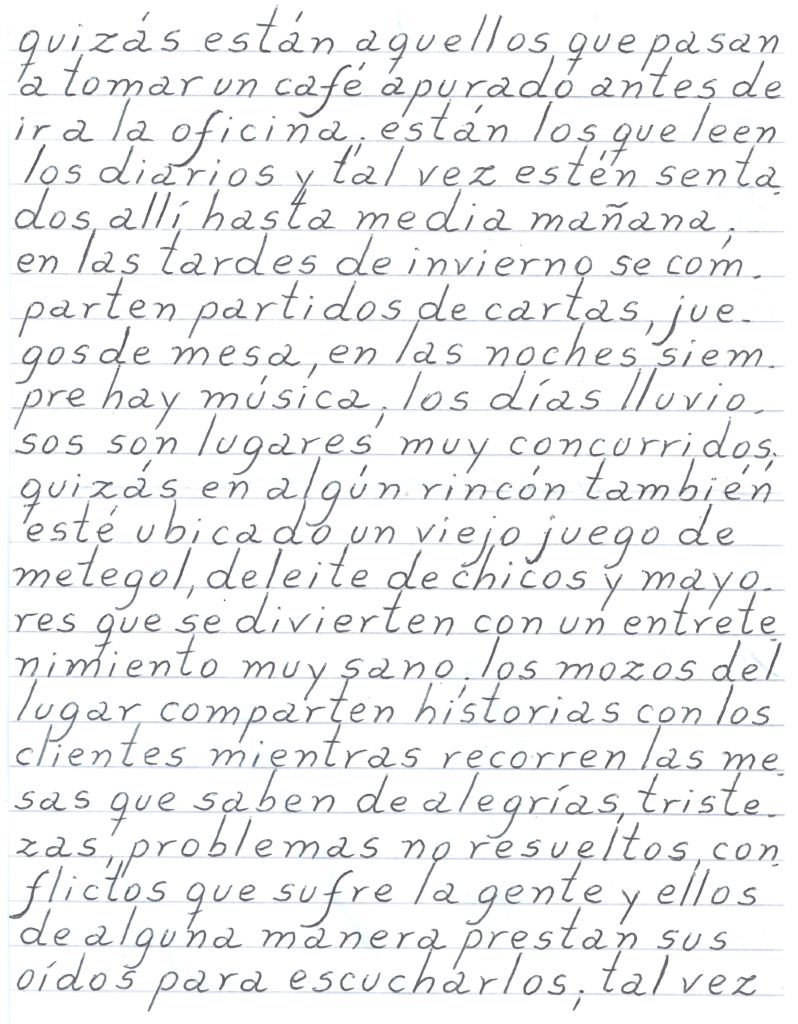 quizás están aquellos que pasan
a tomar un café apurado antes de
ir a la oficina; están los que leen
los diarios y tal vez estén senta-
dos allí hasta media mañana;
en las tardes de invierno se com-
parten partidos de cartas, jue-
gos de mesa, en las noches siem-
pre hay música, los días lluvio-
sos son lugares muy concurridos;
quizás en algún rincón también
esté ubicado un viejo juego de
metegol, deleite de chicos y mayo-
res que se divierten con un entrete-
nimiento muy sano, los mozos del
lugar comparten historias con los
clientes mientras recorren las me-
sas que saben de alegrías, triste-
zas, problemas no resueltos, con-
flictos que sufre la gente y ellos
de alguna manera prestan sus
oídos para escucharlos; tal vez